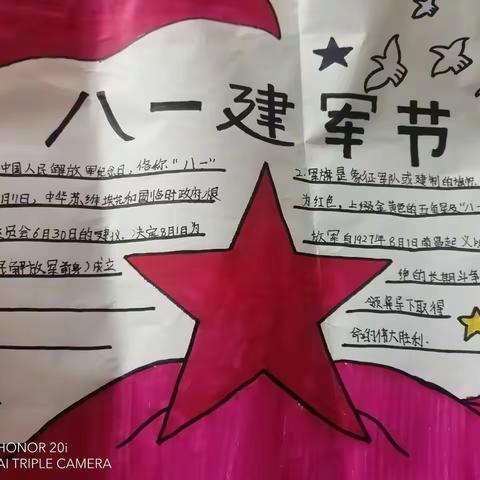 八一建军节
中国人民解放军纪念日,俗称"八一"
月11日,中华苏维埃共和国临时政府根
员会6月30日的建议,决定8月1日为
解放军前身)成立
2.军旗是象征军队或建制的旗帜
为红色,上缀金黄色的五角星及"八一
放军自1927年8月1日南昌起义以
绝的长期斗争
领导下取得
命的伟大胜利.
HONOR 20i
AI TRIPLE CAMERA